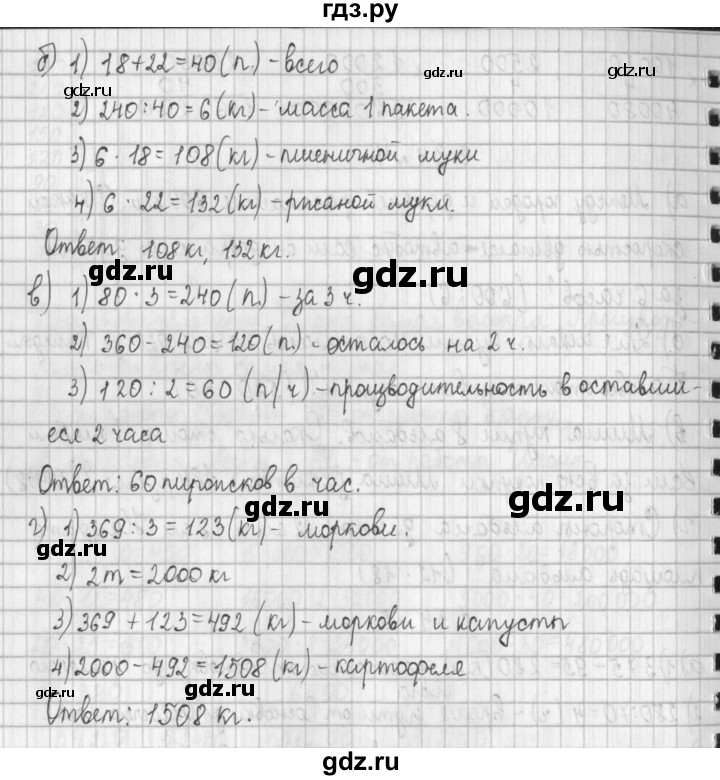 гдз.ру
б) 1) 18+22=40(п.) - всего
2) 240:40=6(кг) - масса 1 пакета.
3) 6 · 18=108(кг) - пшеничной муки
4) 6 · 22=132(кг) - рисаной муки.
Ответ: 108 кг, 132 кг.
в) 1) 80 · 3=240(п.) - за 3 ч.
2) 360-240=120(п.) - осталось на 2 ч.
3) 120:2=60 (п/ч) - производительность в оставши-
еся 2 часа
Ответ: 60 пирожков в час.
г) 1) 369:3=123(кг) - моркови.
2) 2т=2000 кг
3) 369+123=492(кг) - моркови и капусты
4) 2000-492=1508(кг) - картофеля
Ответ: 1508 кг.
gdz.ru
gdz.ru
gdz.ru
gdz.ru
gdz.ru
gdz.ru
gdz.ru
gdz.ru
gdz.ru
gdz.ru
gdz.ru
gdz.ru
gdz.ru